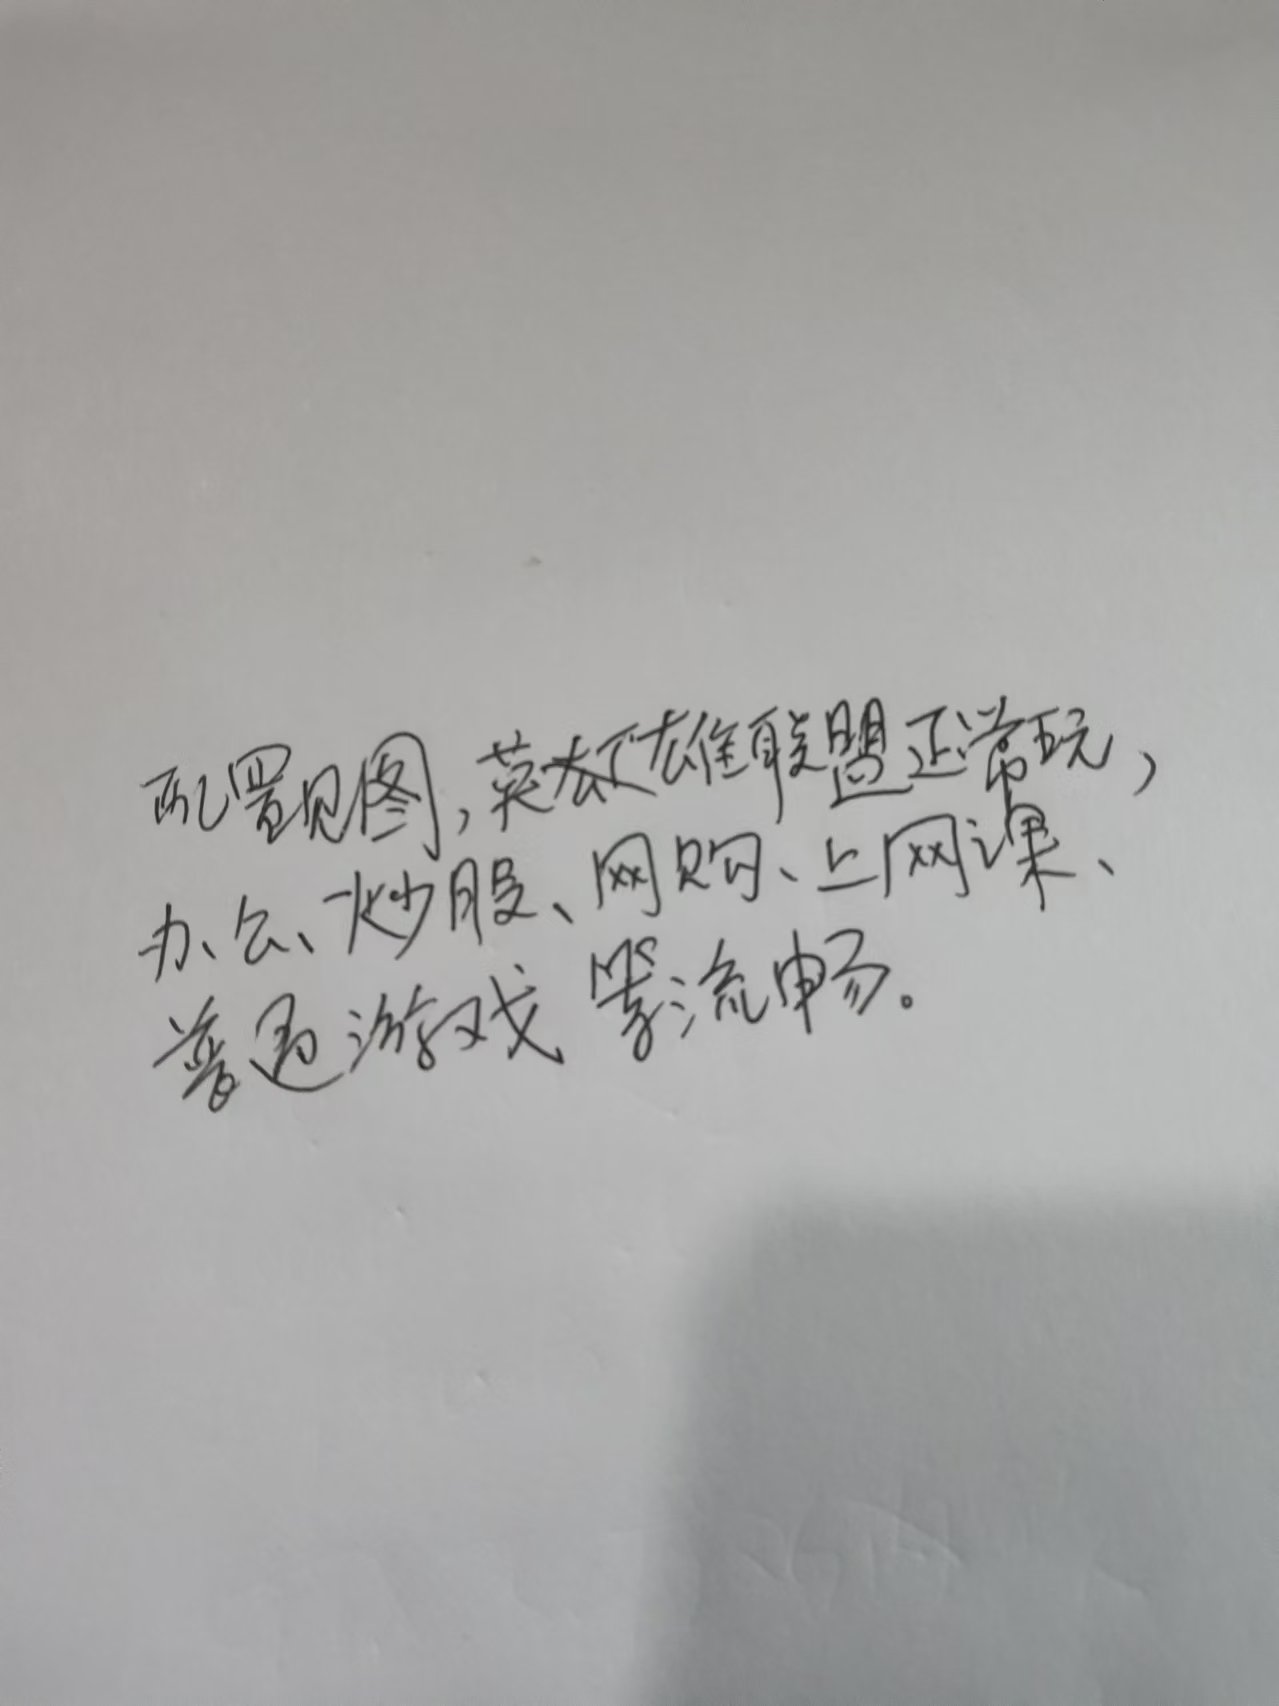 配置见图,英雄联盟正常玩,
办公、炒股、网购、上网课、
普通游戏等流畅。